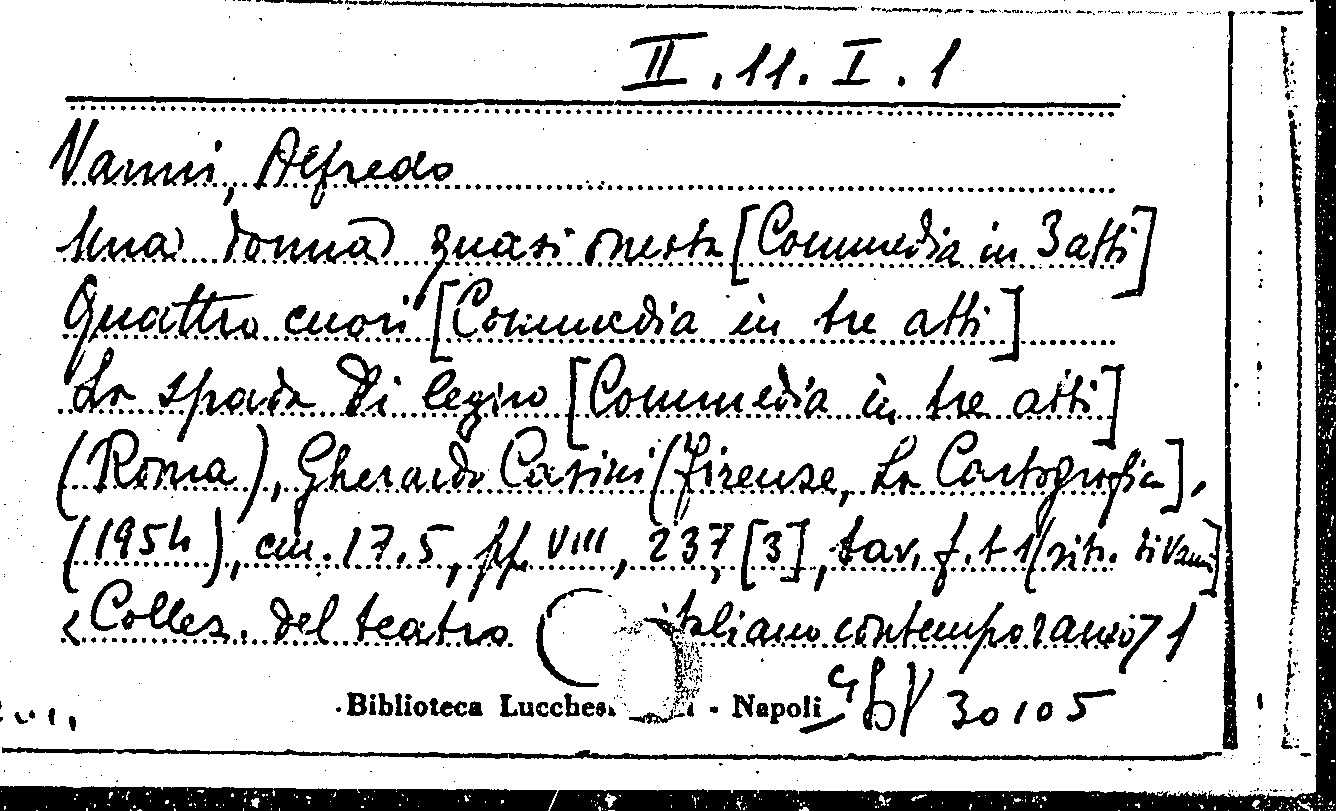 II.11.I.1
Vanni, Alfredo
Una donna quasi onesta [Commedia in 3 atti]
Quattro cuori [Commedia in tre atti]
La spada di legno [Commedia in tre atti]
(Roma), Gherardo Casini (Firenze, La Cartografica],
(1954), cm. 17.5, pp. VIII, 237, [3], tav. f. t 1 [ritr. di Vanni]
<Collez. del teatro italiano contemporaneo> 1
Biblioteca Lucchesi - Napoli 30105